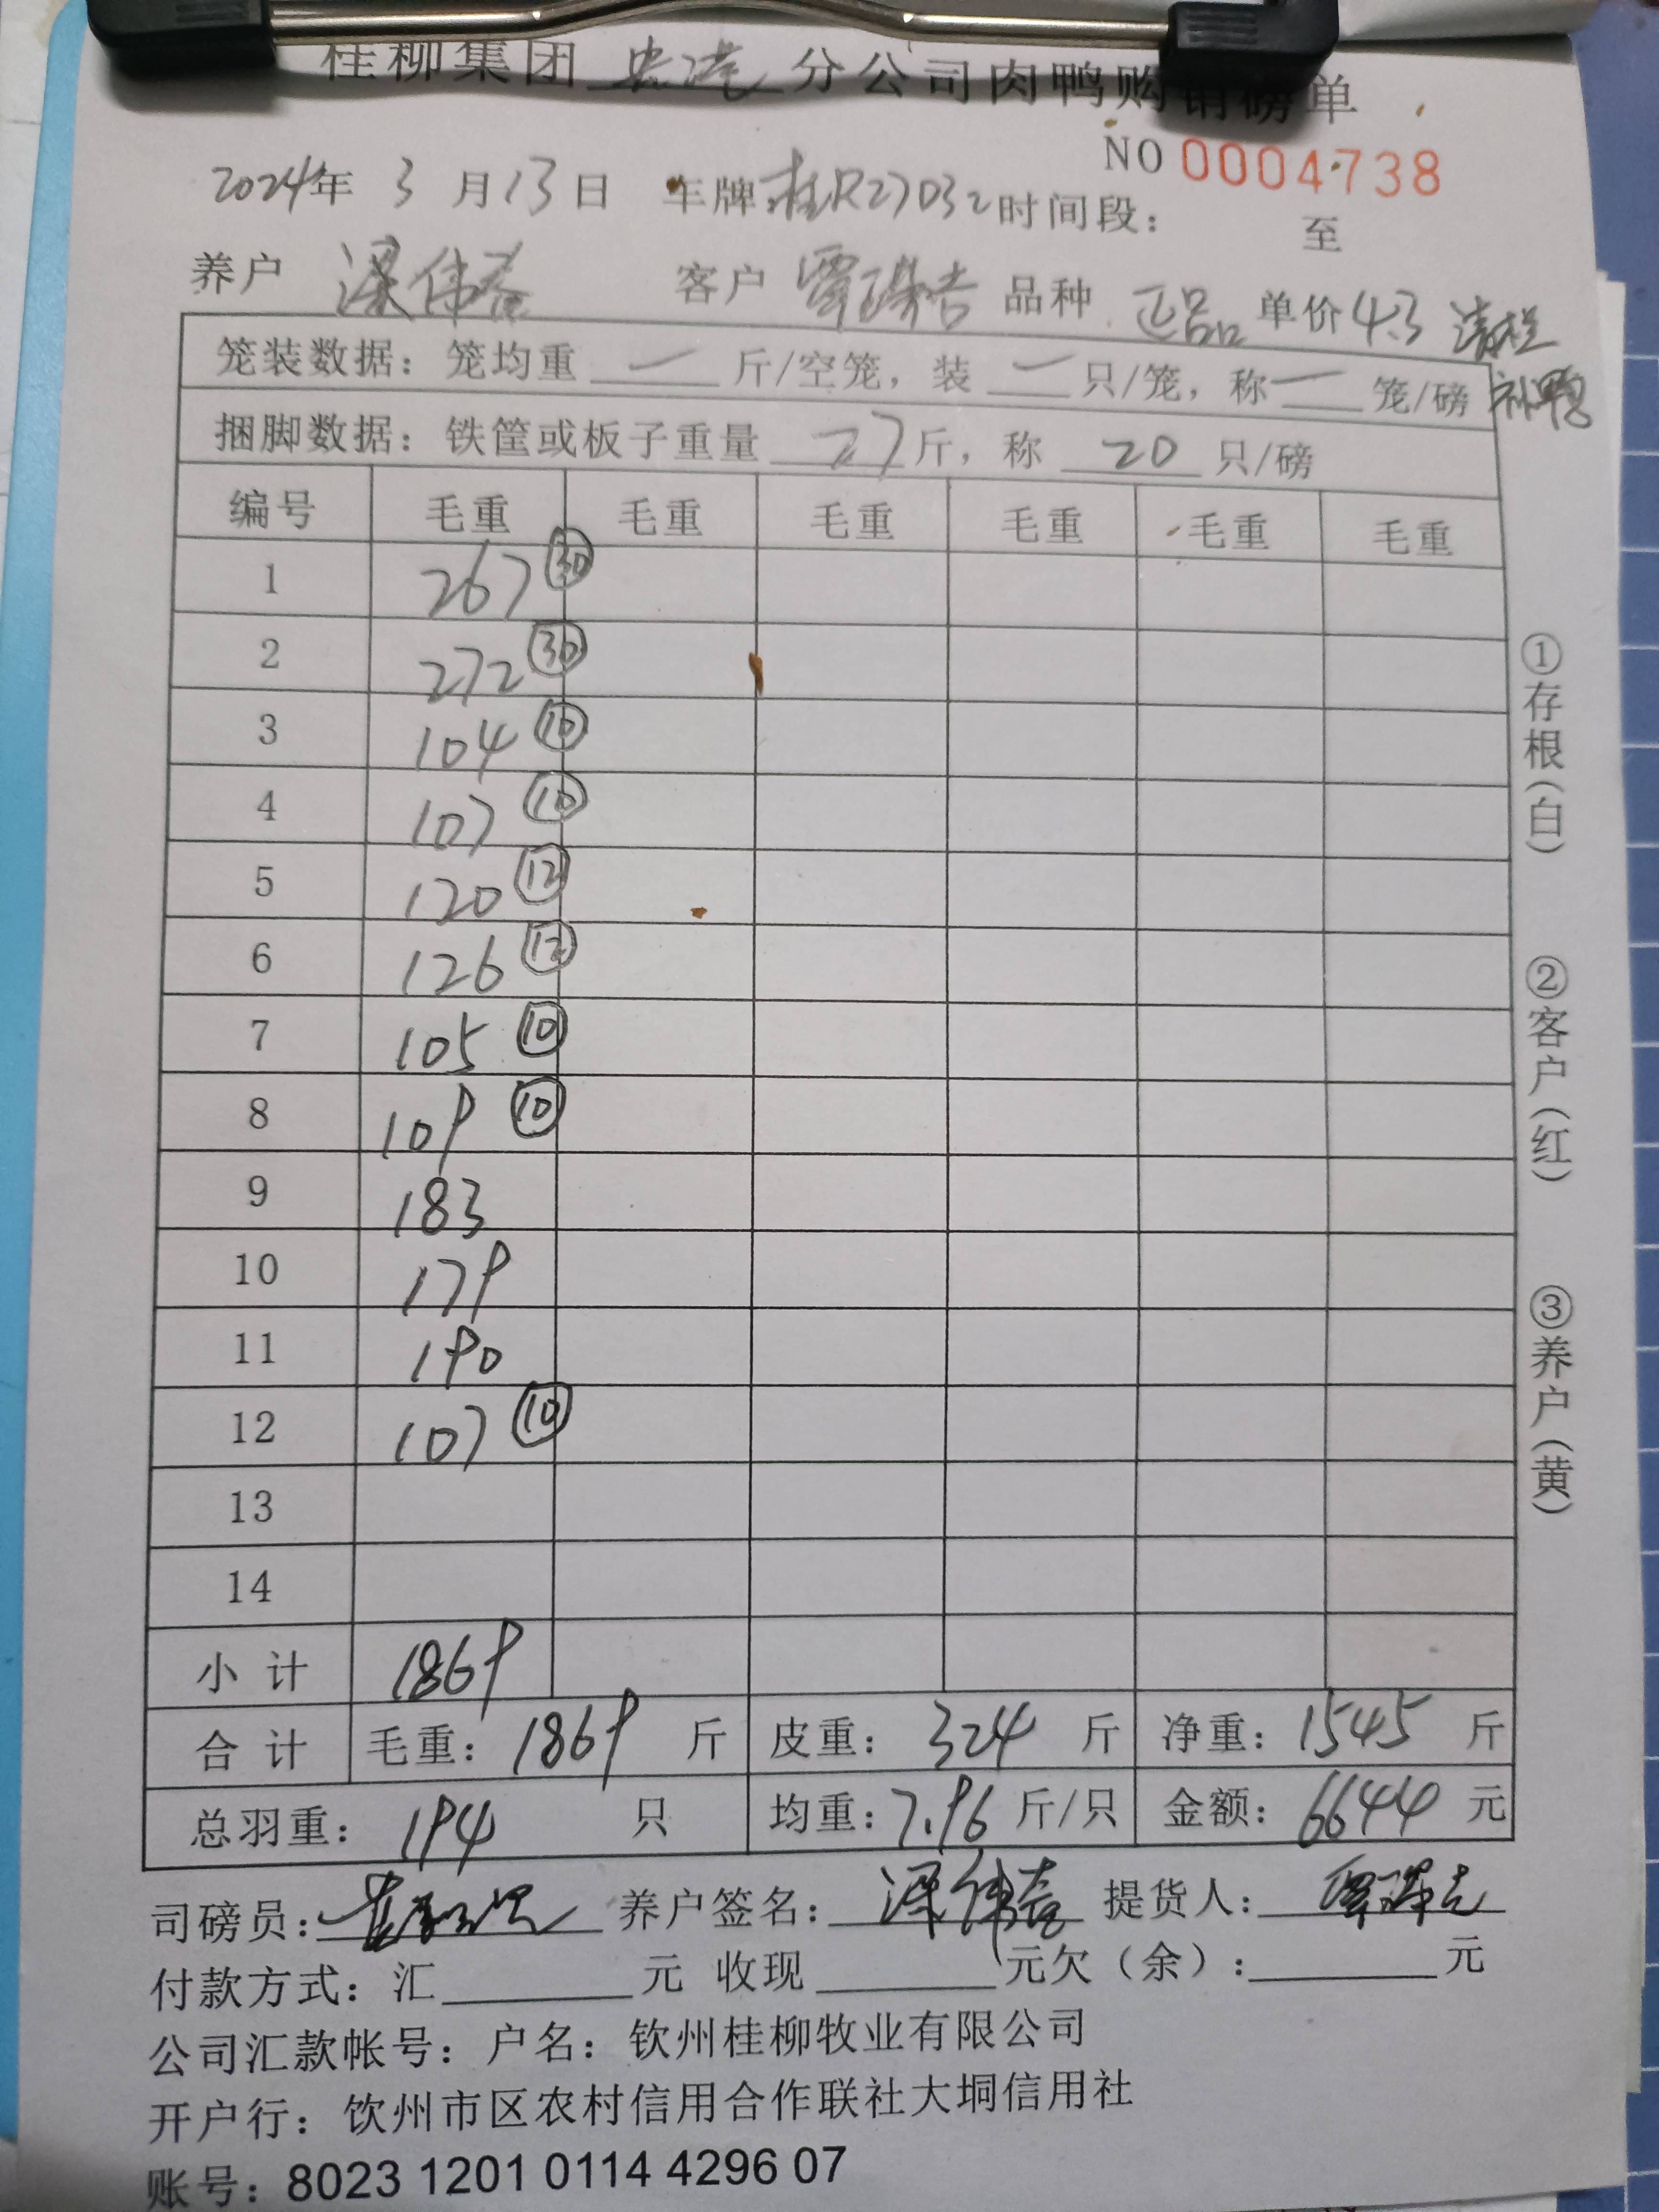 桂柳集团 分公司肉鸭购销磅单
NO 0004738
2024年 3 月 13 日 车牌:桂R27032 时间段: 至
养户 梁伟 客户 覃 品种 正品 单价 4.3 清栏
补鸭
笼装数据: 笼均重 一 斤/空笼, 装 一 只/笼, 称 一 笼/磅
捆脚数据: 铁筐或板子重量 27 斤, 称 20 只/磅
编号 毛重 毛重 毛重 毛重 毛重 毛重
1 267 ㉚
2 272 ㉚
3 104 ⑩
4 107 ⑩
5 120 ⑫
6 126 ⑫
7 105 ⑩
8 109 ⑩
9 183
10 179
11 190
12 107 ⑩
13
14
小计 1869
合计 毛重: 1869 斤 皮重: 324 斤 净重: 1545 斤
总羽重: 194 只 均重: 7.96 斤/只 金额: 6644 元
司磅员: 养户签名: 梁伟 提货人: 覃
付款方式: 汇 元 收现 元欠(余): 元
公司汇款帐号: 户名: 钦州桂柳牧业有限公司
开户行: 钦州市区农村信用合作联社大垌信用社
账号: 8023 1201 0114 4296 07
①存根(白)
②客户(红)
③养户(黄)